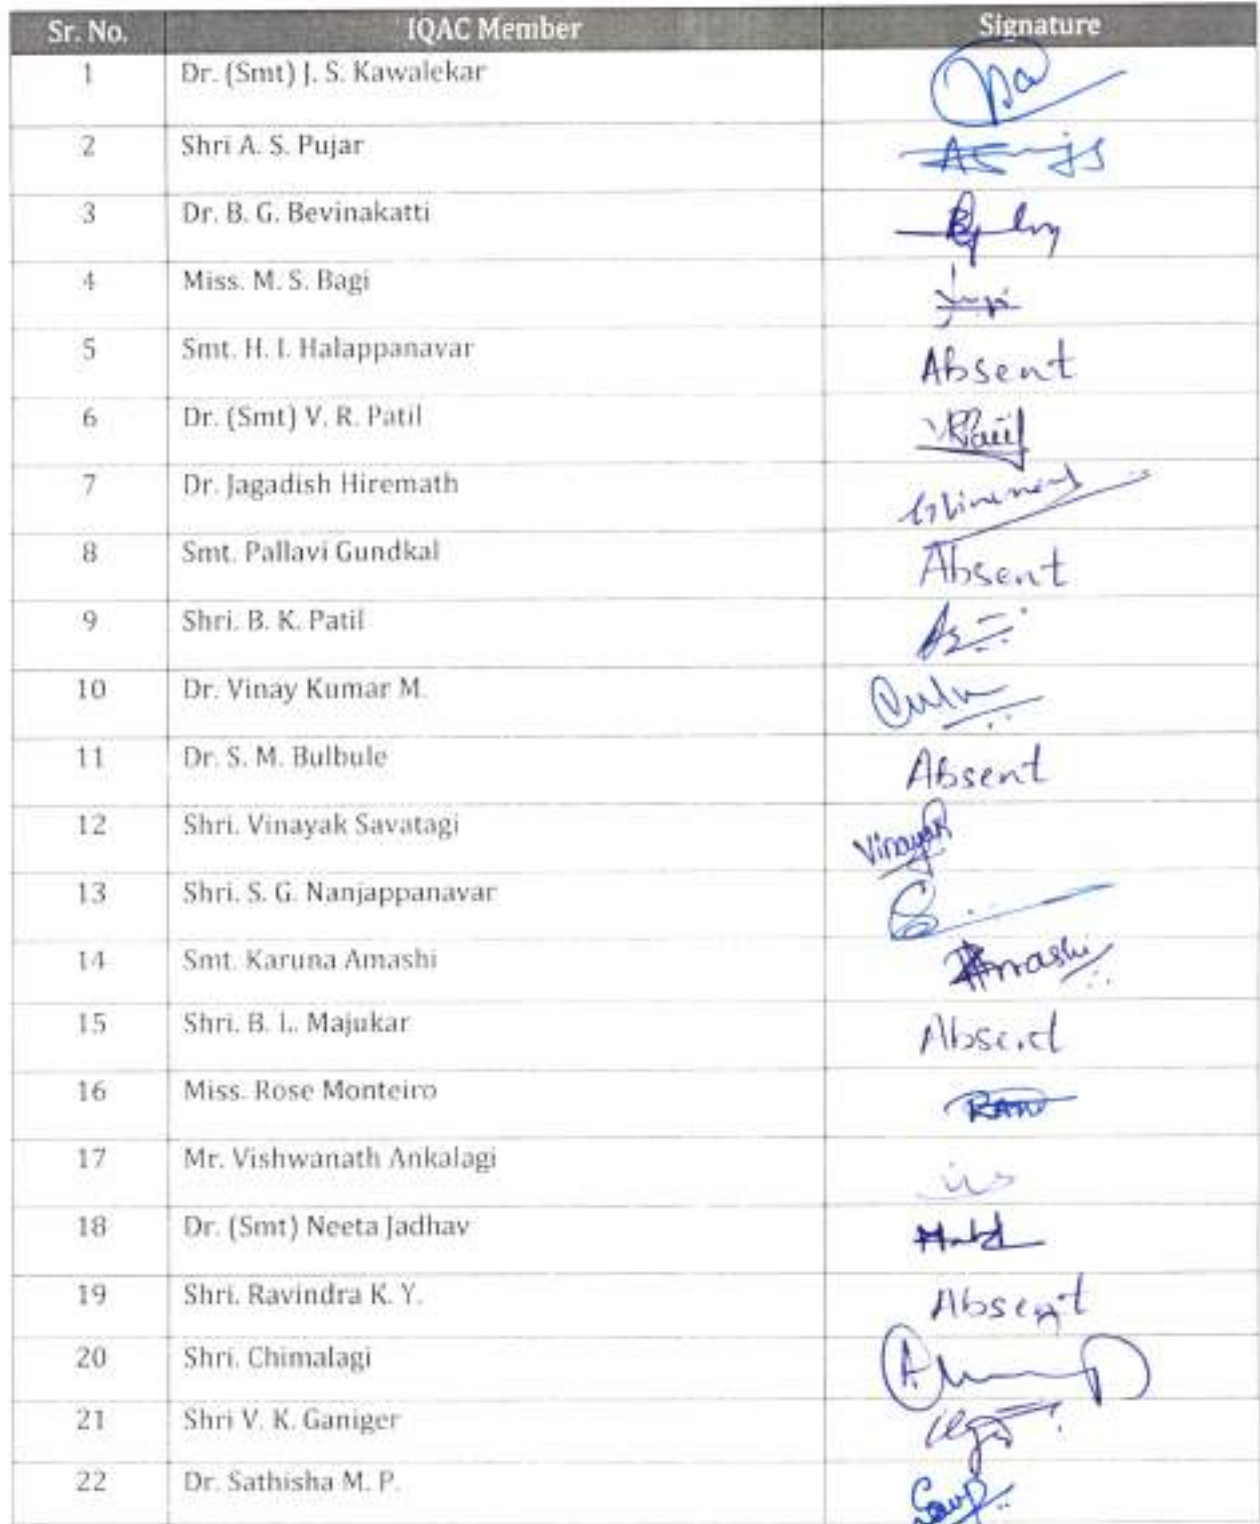 Sr. No. IQAC Member Signature
1 Dr. (Smt) J. S. Kawalekar
2 Shri A. S. Pujar
3 Dr. B. G. Bevinakatti
4 Miss. M. S. Bagi
5 Smt. H. I. Halappanavar Absent
6 Dr. (Smt) V. R. Patil VRPatil
7 Dr. Jagadish Hiremath
8 Smt. Pallavi Gundkal Absent
9 Shri. B. K. Patil
10 Dr. Vinay Kumar M.
11 Dr. S. M. Bulbule Absent
12 Shri. Vinayak Savatagi Vinayak
13 Shri. S. G. Nanjappanavar
14 Smt. Karuna Amashi Amashi
15 Shri. B. L. Majukar Absent
16 Miss. Rose Monteiro
17 Mr. Vishwanath Ankalagi
18 Dr. (Smt) Neeta Jadhav
19 Shri. Ravindra K. Y. Absent
20 Shri. Chimalagi
21 Shri V. K. Ganiger
22 Dr. Sathisha M. P.